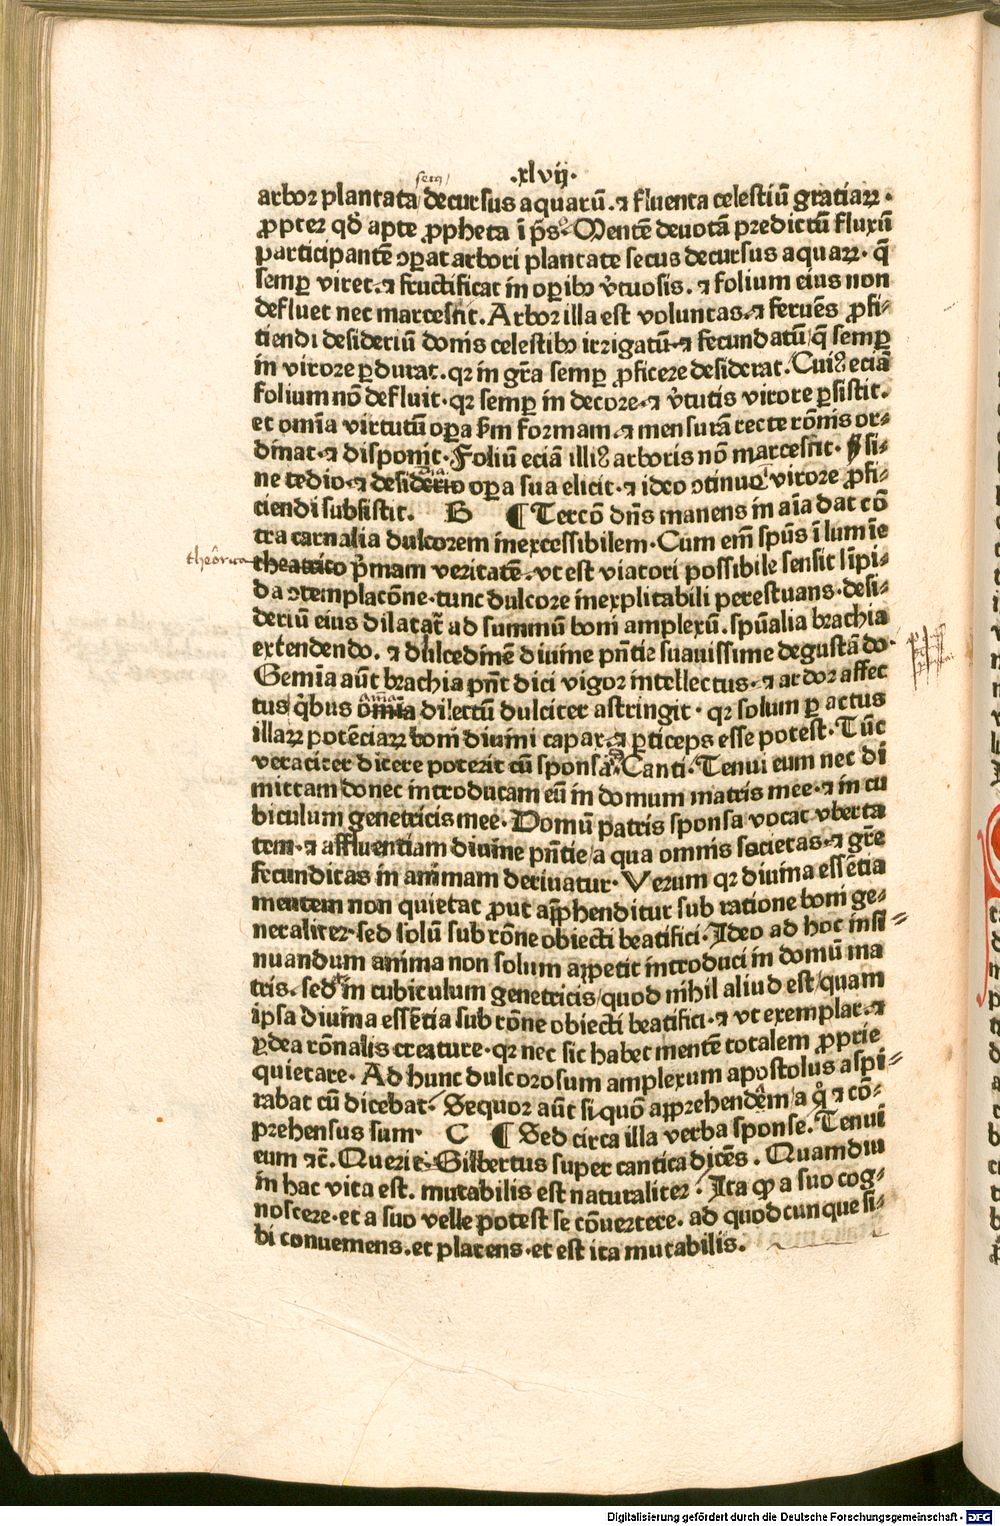 .xlvij.
secus
arbor plantata decursus aquarū. ⁊ fluenta celestiū gratiaꝝ.
ꝓpter qd̄ apte ꝓpheta ī p̄s. Mentē deuotā predictū fluxū
participantē ↄꝑat arbori plantate secus decursus aquaꝝ. q̄
semꝑ viret. ⁊ fructificat in oꝑibꝰ v̓tuosis. ⁊ folium eius non
defluet nec marcescit. Arbor illa est voluntas. ⁊ feruēs ꝓfi⸗
ciendi desideriū donis celestibꝰ irrigatū. ⁊ fecundatū / q̄ semꝑ
in virore ꝑdurat. qꝛ in gr̄a semꝑ ꝓficere desiderat. Cuiꝰ eciā
folium nō defluit. qꝛ semꝑ in decore. ⁊ v̓tutis virore ꝑsistit.
et om̄ia virtutū oꝑa ẜm formam. ⁊ mensurā recte rōnis or⸗
dinat. ⁊ disponit. Foliū eciā illiꝰ arboris nō marcescit. si⸗
ne tedio. ⁊ desiderio oꝑa sua elicit. ⁊ ideo ↄtinuo virore ꝓfi⸗
ciendi subsistit. B ¶ Tercō dn̄s manens in aīa dat cō
tra carnalia dulcorem inexcessibilem. Cum em̄ spūs ī lumīe
theōrico
theatrico p̄mam veritatē. vt est viatori possibile sensit līpi⸗
da ↄtemplacōne. tunc dulcore inexplicabili perestuans. desi⸗
deriū eius dilatat̄ ad summū boni amplexū. spūalia brachia
extendendo. ⁊ dulcedinē diuine pn̄tie suauissime degustādo.
Gemīa aūt brachia pn̄t dici vigor intellectus. ⁊ ardor affec
tus q̇bus om̄ia dilectū dulciter astringit. qꝛ solum ꝑ actus
illaꝝ potēciaꝝ boni diuini capax. ⁊ ꝑticeps esse potest. Tūc
veraciter dicere poterit cū sponsa. Canti. Tenui eum nec di
mittam donec introducam eū in domum matris mee. ⁊ in cu
biculum genetricis mee. Domū patris sponsa vocat vberta
tem. ⁊ affluentiam diuine pn̄tie / a qua omnis societas. ⁊ gr̄e
fecunditas in animam deriuatur. Verum qꝛ diuina essētia
mentem non quietat ꝓut app̄henditur sub ratione boni ge⸗
neraliter. sed solū sub rōne obiecti beatifici. Ideo ad hoc insi⸗
nuandum anima non solum appetit introduci in domū ma
tris. sed in cubiculum genetricis / quod nihil aliud est / quam
ipsa diuina essētia sub rōne obiecti beatifici. ⁊ vt exemplar. ⁊
ydea rōnalis creature. qꝛ nec sic habet mentē totalem ꝓprie
quietare. Ad hunc dulcorosum amplexum apostolus aspi⸗
rabat cū dicebat. Sequor aūt si quō apprehendēm / a q̊ ⁊ cō⸗
prehensus sum. C ¶ Sed circa illa verba sponse. Tenui
eum ⁊c̄. Querit. Gilbertus super cantica dicēs. Quamdiu
in hac vita est. mutabilis est naturaliter. Ita ꝙ a suo cog⸗
noscere. et a suo velle potest se cōuertere. ad quodcunque si⸗
bi conueniens. et placens. et est ita mutabilis.
Digitalisierung gefördert durch die Deutsche Forschungsgemeinschaft - DFG